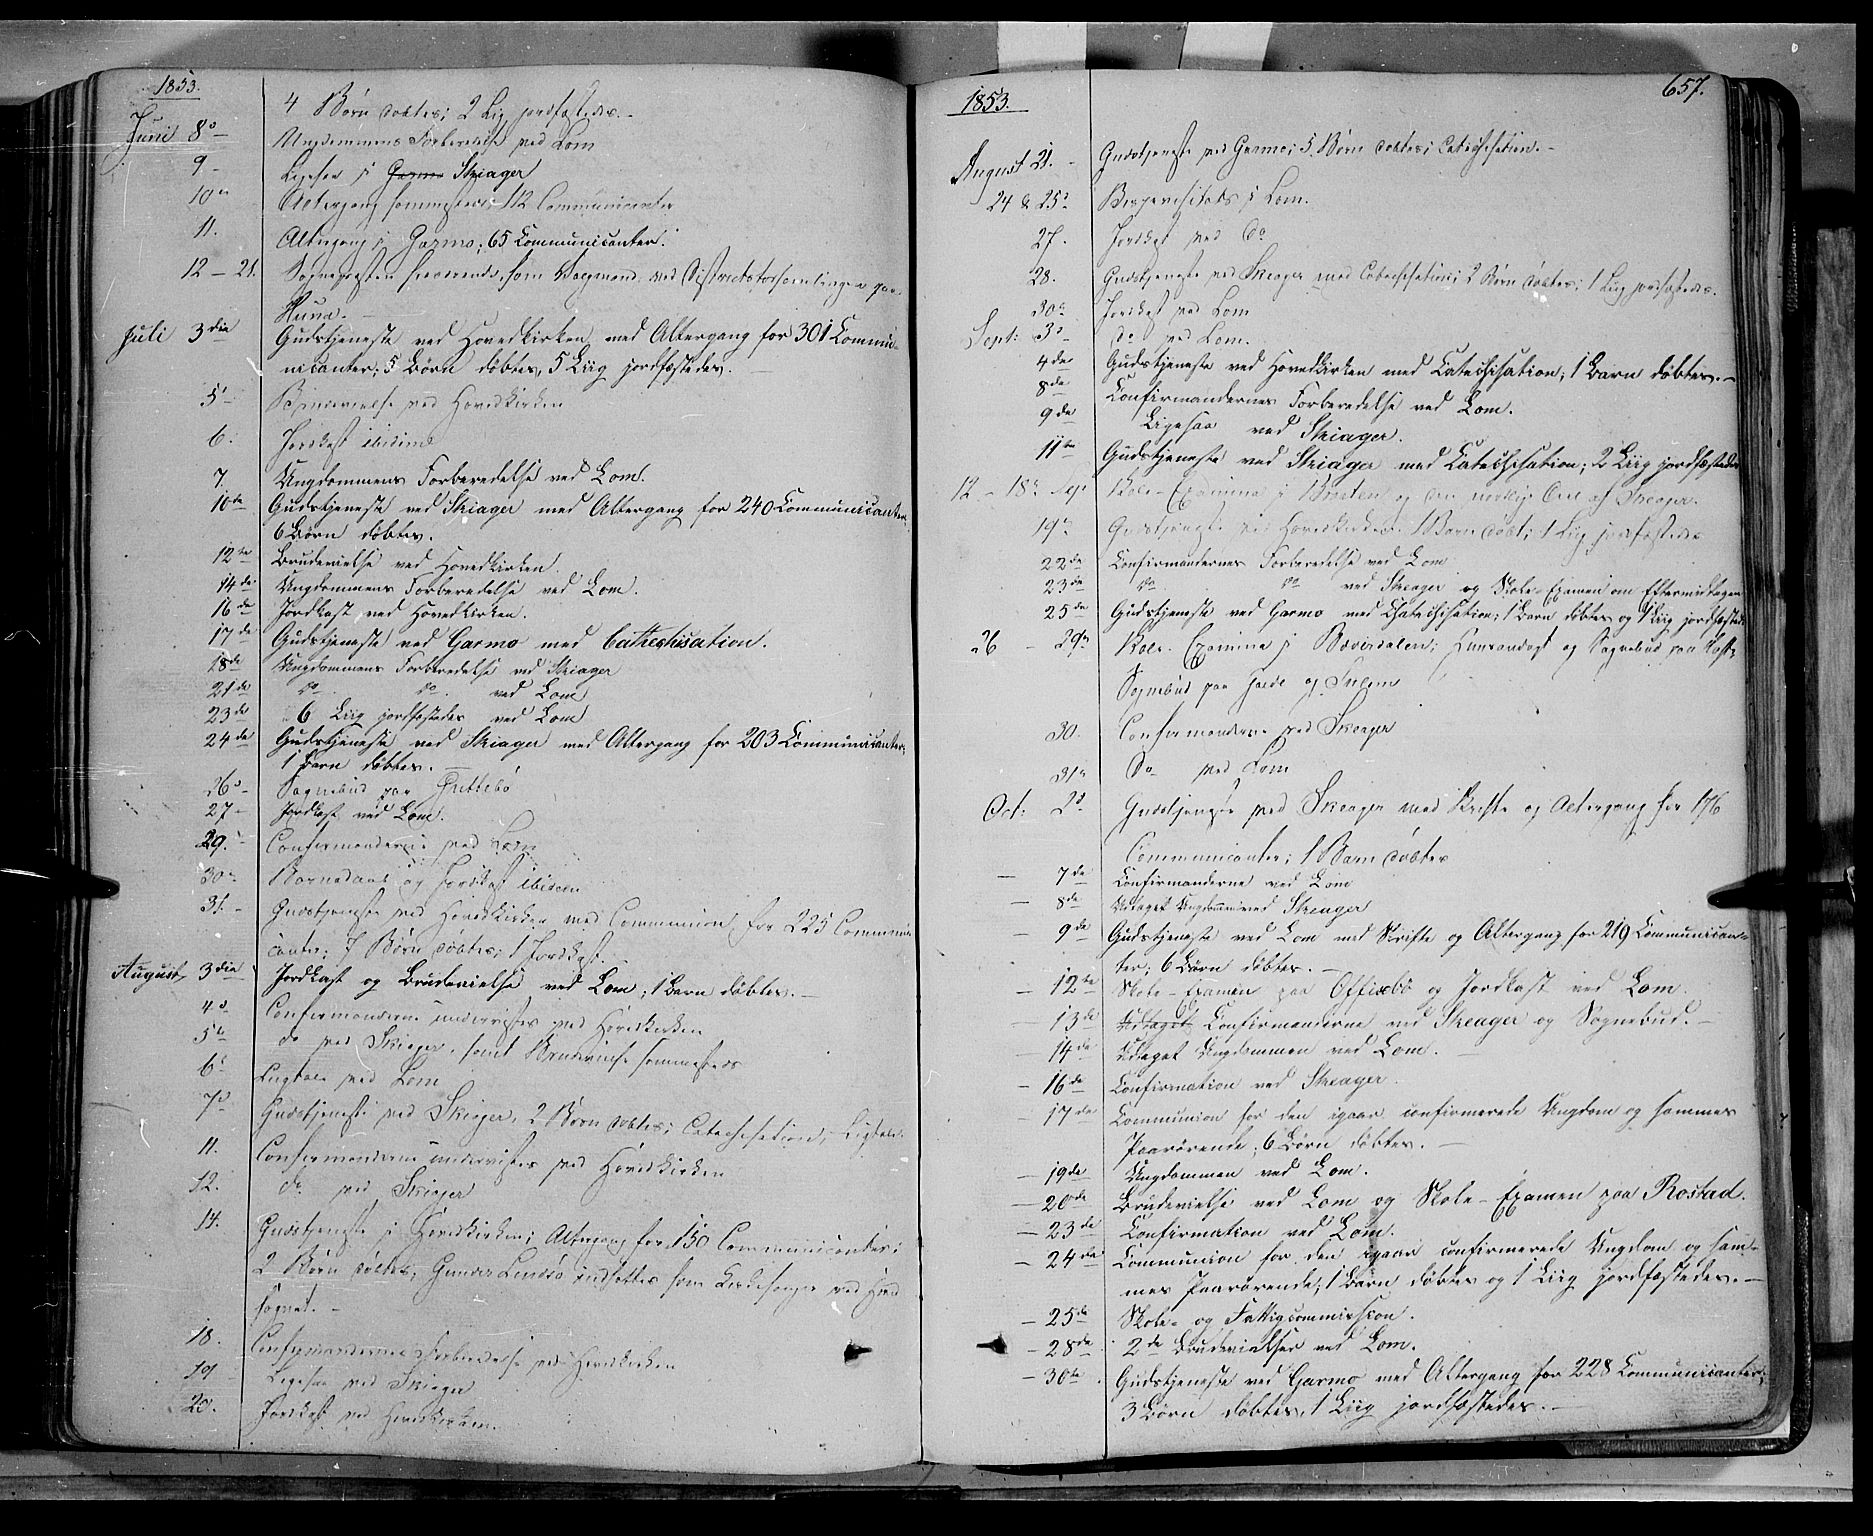 1853.
4 Børn døbtes; 2 Lig jordfæstedes. -
Juni 8de Ungdommens Forberedelse ved Lom
9 - Ligesaa i Garmo Skiager
10de Altergang sammesteds; 112 Communicanter
11. Altergang i Garmo; 65 Communicanter.
12 - 21. Sognepræsten fraværende, som Valgmand, ved Districtsforsamlingen paa
Huna. -
Juli 3die Gudstjeneste ved Hovedkirken med Altergang for 301 Commu-
nicanter; 5 Børn døbtes, 5 Liig jordfæstedes. -
5 Brudevielse ved Hovedkirken
6. Jordkast ibidem
7. Ungdommens Forberedelse ved Lom.
10de Gudstjeneste ved Skiager med Altergang for 240 Communicanter,
6 Børn døbtes.
12te Brudevielse ved Hovedkirken.
14de Ungdommens Forberedelse ved Lom.
16de Jordkast ved Hovedkirken.
17de Gudstjeneste ved Garmo med Cathechisation.
18de Ungdommens Forberedelse ved Skiager
21de do do ved Lom
23de 6 Liig jordfæstedes ved Lom
24de Gudstjeneste ved Skiager med Altergang for 203 Communicanter;
1 Barn døbtes. -
26 - Sognebud paa
27 - Jordkast ved Lom.
29. - Confirmanderne ved Lom
30. Barnedaab og Jordkast ibidem
31. - Gudstjeneste ved Hovedkirken med Communion for 225 Communi-
canter; 7 Børn døbtes; 1 Jordkast. -
August 3die Jordkast og Brudevielse ved Lom; 1 Barn døbtes. -
4de Confirmanderne underviistes ved Hovedkirken
5te do ved Skiager, samt Brudevielse sammesteds
6. Ligtale ved Lom
7de Gudstjeneste ved Skiager, 2 Børn døbtes; Catechisation, Ligtale.
11. Confirmanderne underviistes ved Hovedkirken
12. do ved Skiager
14. Gudstjeneste i Hovedkirken; Altergang for 150 Communicanter;
2 Børn døbtes, indsattes som Kirkesanger ved Hoved
sognet. -
18. Confirmandernes Forberedelse ved Hovedkirken
19 Ligesaa ved Skiager
20. Jordkast ved Hovedkirken.
657.
1853.
August 21. - Gudstjeneste ved Garmo; 5 Børn døbtes; Catechisation. -
24 & 25de Bispevisitats i Lom.
27. Jordkast ved do
28. Gudstjeneste ved Skeager med Catechisation; 2 Børn døbtes; 1 Liig jordfæstedes.
30. Jordkast ved Lom
Sept: 3. do ved Lom.
4de Gudstjeneste ved Hovedkirken med Katechisation; 1 Barn døbtes. -
8de Confirmandernes Forberedelse ved Lom.
9de Ligesaa ved Skiager.
11te Gudstjeneste ved Skiager med Katechisation; 2 Liig jordfæstedes
12 - 18. Sep. Skole-Examina i og den nordlige Deel af Skeager.
19. Gudstjeneste ved Hovedkirken. 1 Barn døbt; 1 Liig jordfæstedes
22de Confirmandernes Forberedelse ved Lom
23de do do ved Skeager og Skole-Examen om Eftermiddagen
25de Gudstjeneste ved Garmo med Chatechisation; 1 Barn døbtes og 1 Liig jordfæstedes
26 - 29. Skole-Examina i Bæverdalen; og Sognebud paa
Sognebud paa og Sulem
30. Confirmanderne ved Skeager
31. Do ved Lom
Oct: 2. Gudstjeneste ved Skeager med Skrifte og Altergang for 176
Communicanter; 1 Barn døbtes
- 7de Confirmanderne ved Lom
- 8de Udtaget Ungdommen ved Skeager
- 9de Gudstjeneste ved Lom med Skrifte og Altergang for 219 Communican-
ter; 6 Børn døbtes. -
- 12te Skole-Examen paa Offixbø og Jordkast ved Lom.
- 13de Udtaget Confirmanderne ved Skeager og Sognebud. -
- 14de Udtaget Ungdommen ved Lom. -
- 16de Confirmation ved Skeager.
- 17de Communion for den igaar confirmerede Ungdom og sammes
Paarørende; 6 Børn døbtes. -
- 19de Ungdommen ved Lom.
- 20de Brudevielse ved Lom og Skole-Examen paa Rostad.
- 23de Confirmation ved Lom.
- 24de Communion for den igaar confirmerede Ungdom og sam-
mes Paarørende; 1 Barn døbtes og 1 Liig jordfæstedes. -
- 25de Skole- og Fattigcommission.
- 28de 2de Brudevielser ved Lom.
- 30te Gudstjeneste ved Garmo med Altergang for 228 Communicanter;
3 Børn døbtes, 1 Liig jordfæstedes. -